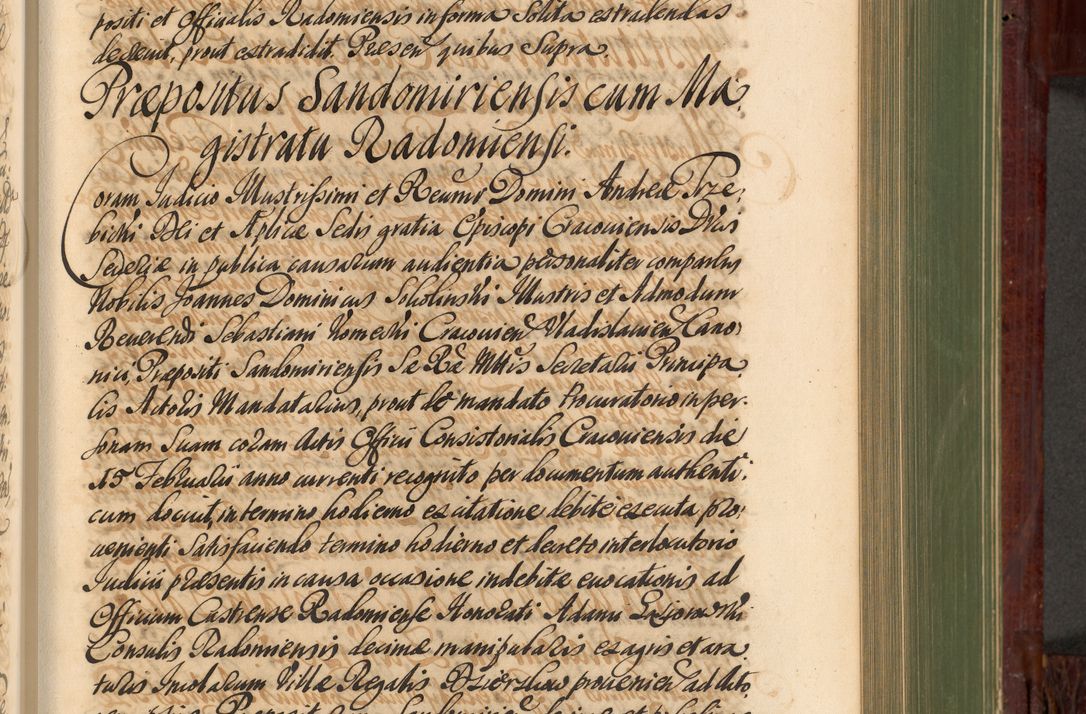 positi et Officialis Radomiensis in forma Solita extradendas
decrevit, prout extradidit. Præsen: quibus Supra.
Præpositus Sandomiriensis cum Ma,
gistratu Radomiensi.
Coram Judicio Illustrissimi et Reverēmi Domini Andreæ Trze,
bicki Dei et Aplicæ Sedis gratia Episcopi Cracoviensis Ducis
Severiæ in publica causarum audientia personaliter comparens
Nobilis Joannes Dominicus Sokolinski Illustris et Admodum
Reverendi Sebastiani Komecki Cracovien Vladislavien Cano,
nici, Præpositi Sandomiriensis Sæ Ræ Mttis Secretarii Principa,
lis Actoris Mandatarius, prout de mandato Procuratorio in per,
sonam Suam coram Actis Officii Consistorialis Cracoviensis die
15 Februarii anno currenti recognito per documentum authenti,
cum docuit, in termino hodierno ex citatione debite executa pro,
venienti Satisfaciendo termino hodierno et decreto interlocutorio
Judicii præsentis in causa occasione indebitæ evocationis ad
Officium Castrense Radomiense Honorati Adami
Consulis Radomiensis decimæ manipularis ex agris et ara,
turis Incolarum Villæ Regalis Dzierzkow provenien ad dto,